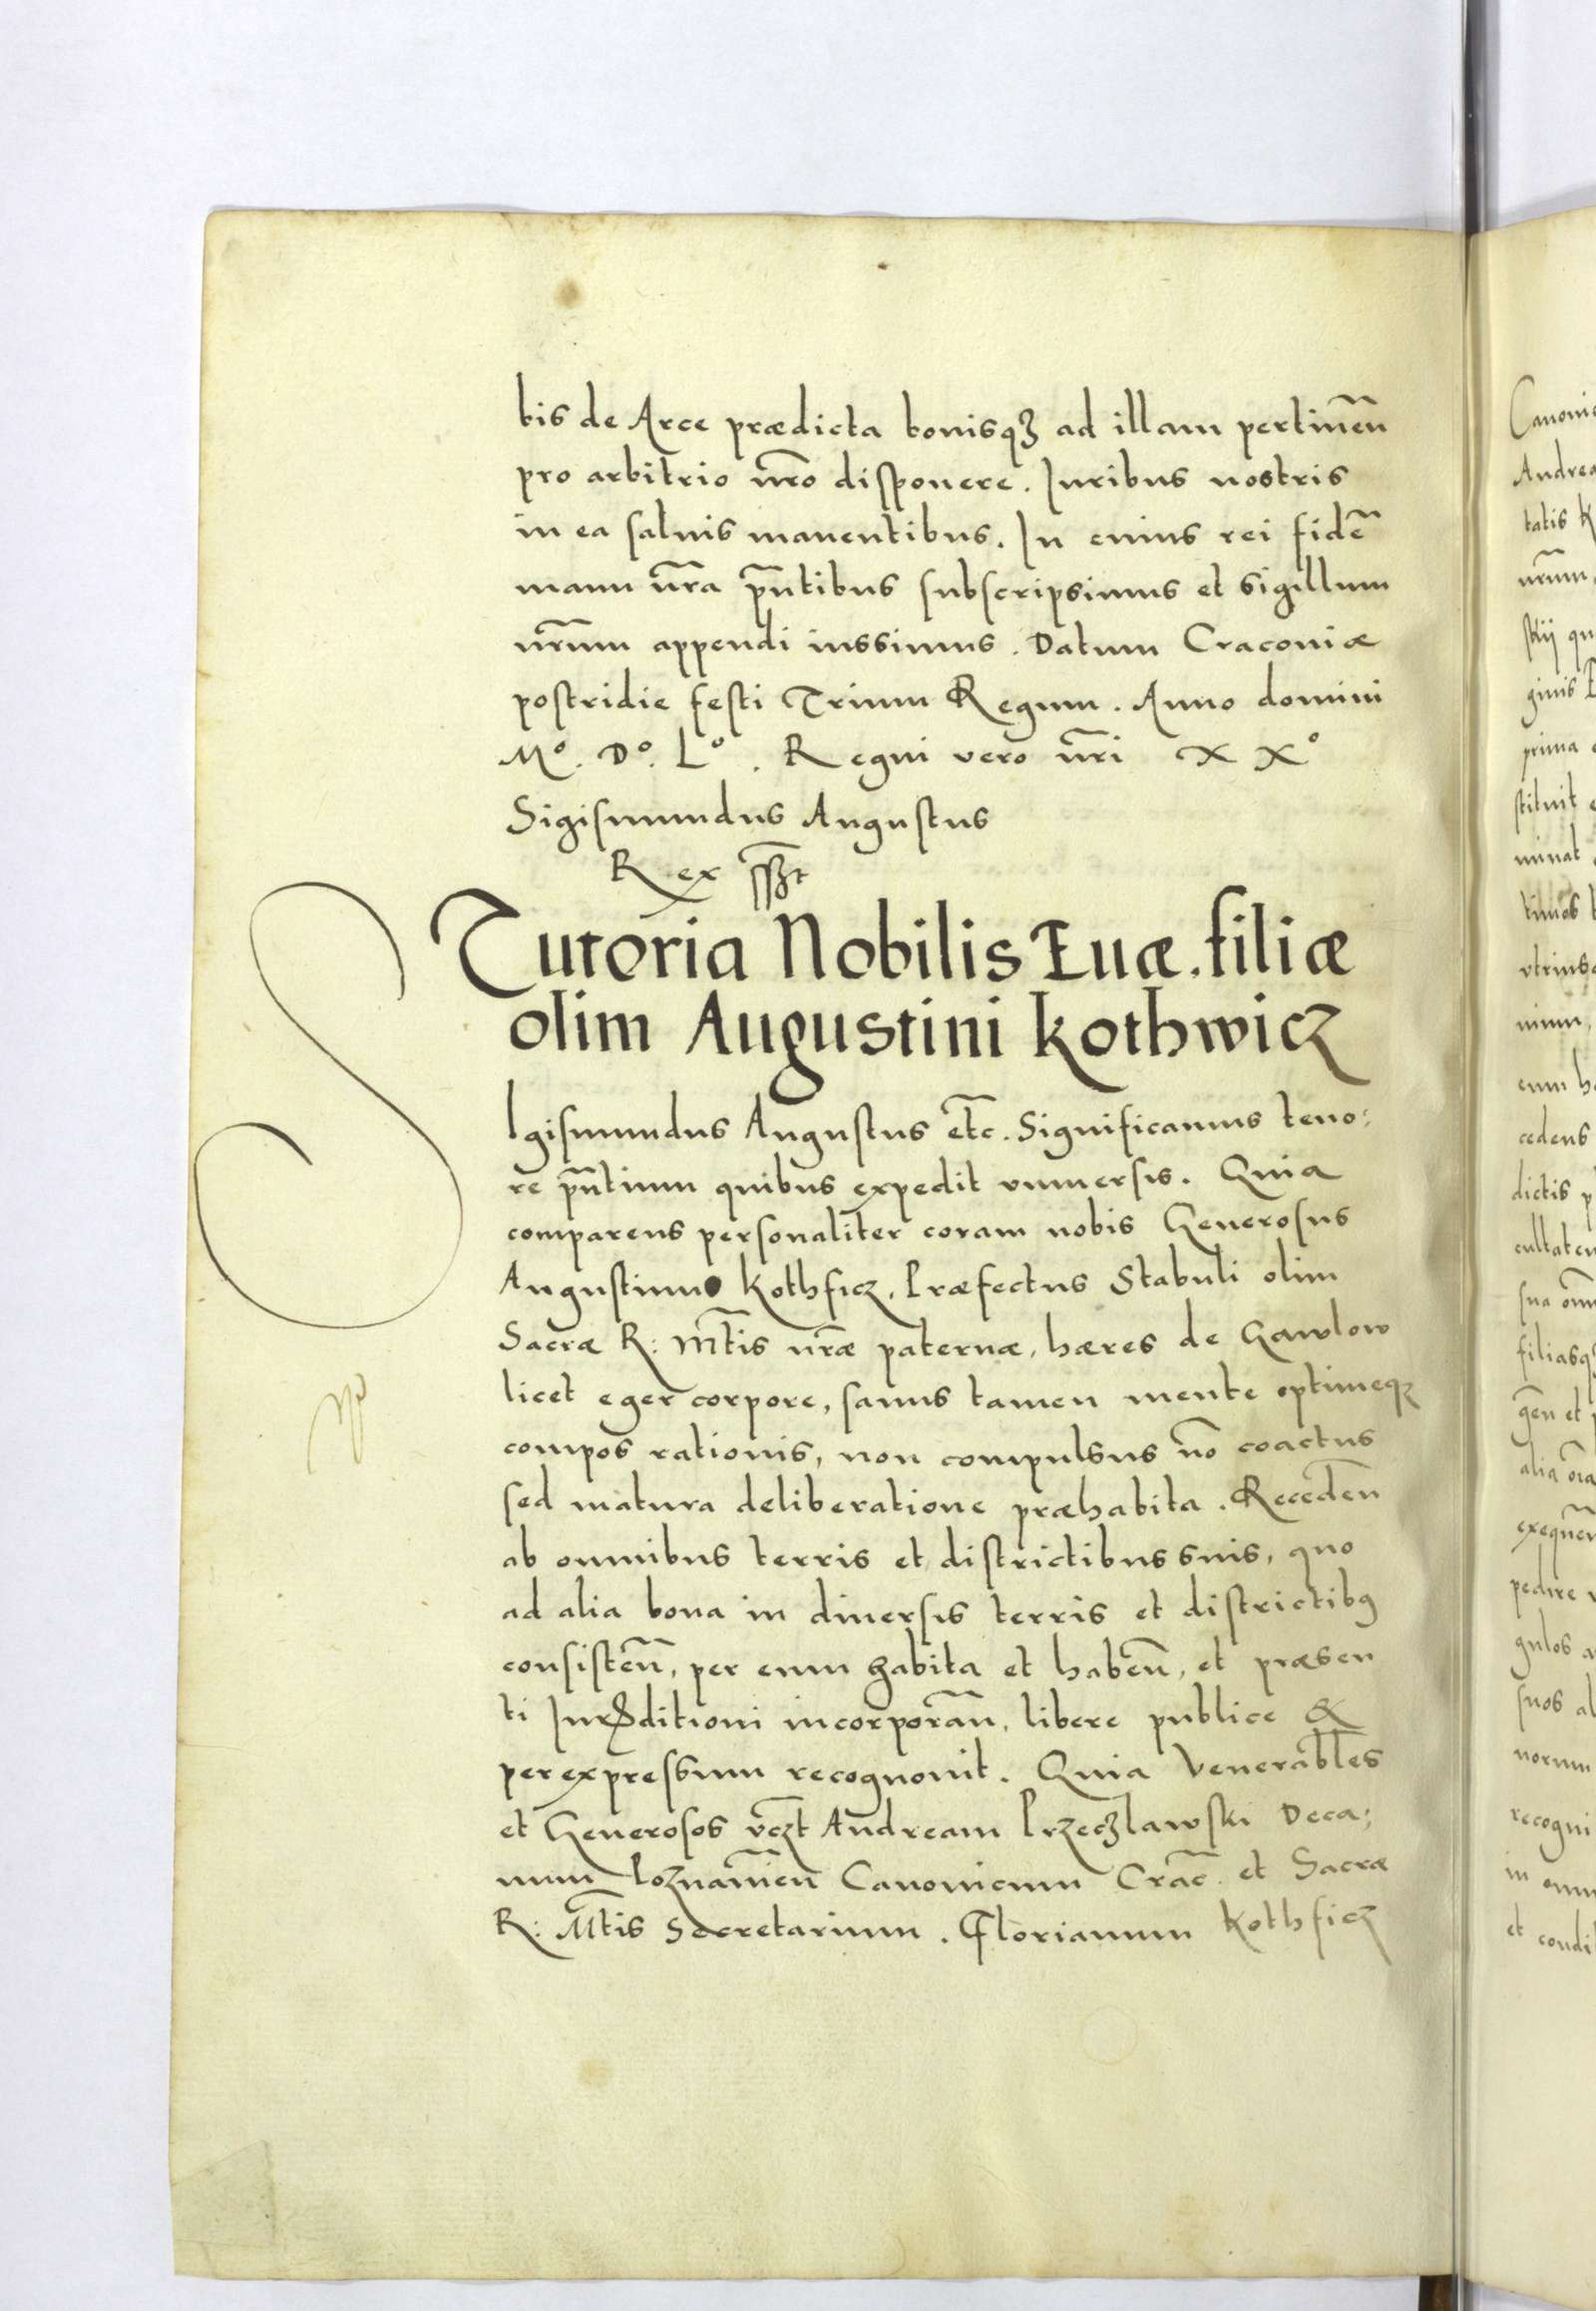 bis de Arce prædicta bonisqꝫ ad illam pertineñ
pro arbitrio nr̃o disponere. Iuribus nostris
in ea saluis manentibus. In cuius rei fidẽ
manu nr̃a pñtibus subscripsimus et sigillum
nr̃um appendi iussimus. Datum Cracouiæ
postridie festi Trium Regum. Anno domini
Mº. Dº. Lº. Regni vero nr̃i XXº
Sigismundus Augustus
Rex sszt
Tutoria Nobilis Euæ. filiæ
olim Augustini Kothwicz
SIgismundus Augustus etc̃. Significamus teno:
re pñtium quibus expedit vniuersis. Quia
comparens personaliter coram nobis Generosus
Augustinus Kothficz, Præfectus Stabuli olim
Sacræ R: Mt̃is nr̃æ paternæ, hæres de Gawlow
licet eger corpore, sanus tamen mente optimeqꝫ
compos rationis, non compulsus nõ coactus
sed matura deliberatione præhabita. Recedeñ
ab omnibus terris et districtibus suis, quo
ad alia bona in diuersis terris et districtibꝰ
consisteñ, per eum habita et habeñ, et præsen
ti Iurꝭditioni incorporañ, libere publice &
per expressum recognouit. Quia Venerabl̃es
et Generosos vczt̃ Andream Przeczlawski Deca:
num Poznanieñ Canonicum Crac̃. et Sacræ
R: Mt̃is Secretarium. Florianum Kothficz